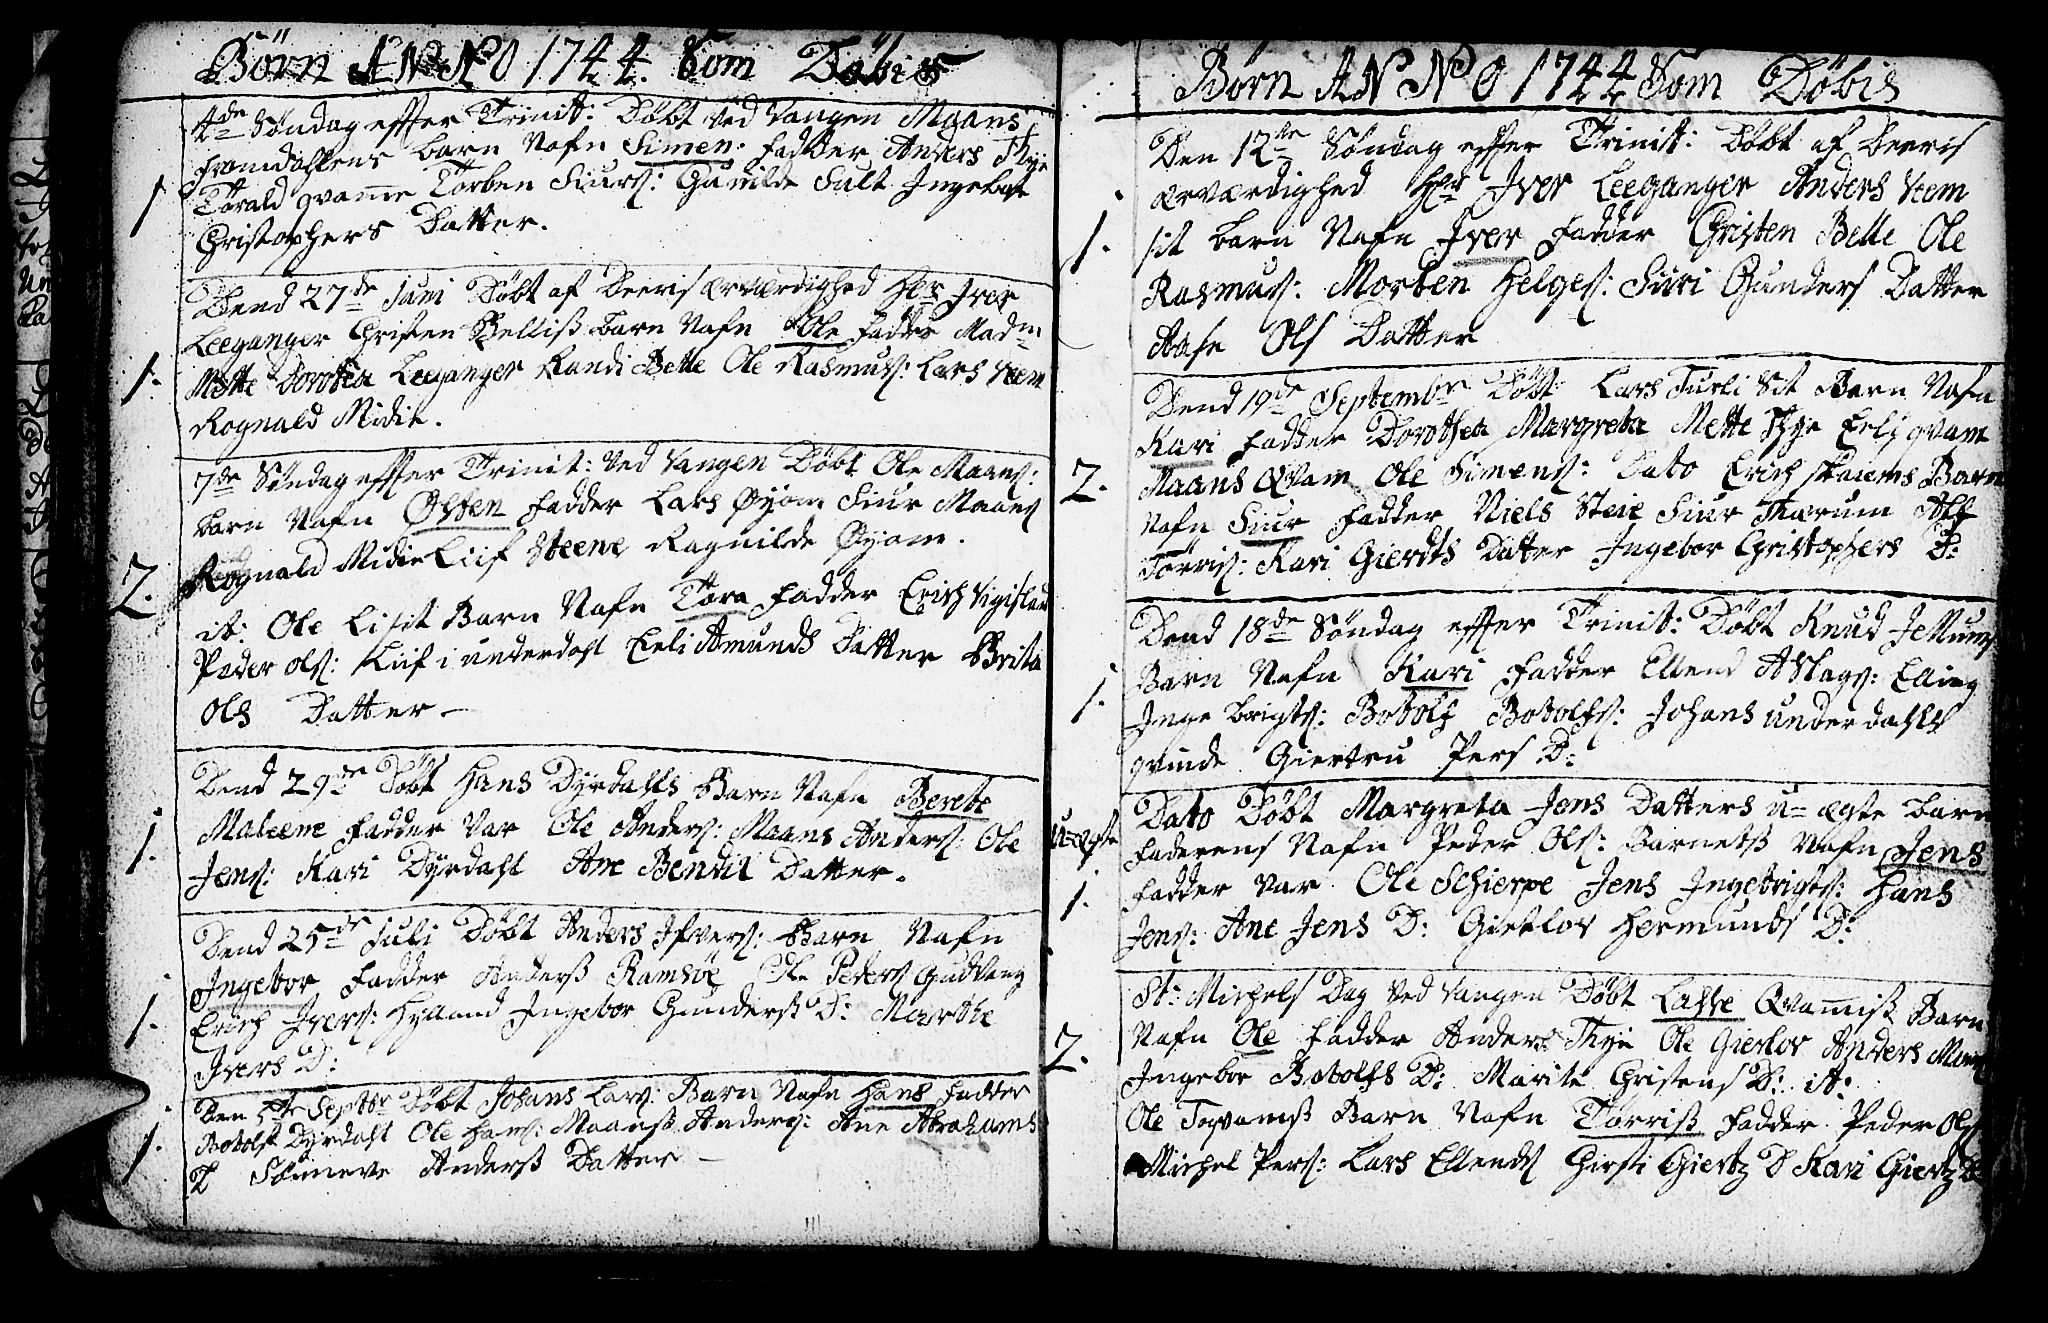 Börn ANNO 1744. Som Döbis
4de Söndag effter Trinit: Döbt ved Vangen Maans
Fromdahlens barn Nafn Simen. Fadder Anders Thye
1 Torald qvame Torben Siurs: Gunilde Sult Ingebor
Christophers Datter.
Dend 27de Juni Döbt af Deeris ærværdighed Hr Iver
Leeganger Christen Belliß barn Nafn Ole Fadder Madm
1. Mette Dorothea Leeganger Randi Belle Ole Rasmuss: Lars Steen
Rognald Midie.
7de Söndag effter Trinit: ved Vangen Döbt Ole Maans:
barn Nafn Östen Fadder Lars Öyom Siur Maans
2. Rognald Midie Liif Steene Ragnilde Öyom.
it: Ole Li sit Barn Nafn Tora Fadder Erich
Peder Ols: Liif i underdahl Eeli Amunds Datter Brita
Ols Datter –
Dend 29de Döbt Hans Dyrdahls Barn Nafn Berete
1. Maleene Fadder Var Ole Anders: Maans Anders: Ole
Jens: Kari Dyrdahl Ane Bendit Datter.
Dend 25de Juli Döbt Anders Ifvers: Barn Nafn
Ingebor Fadder Anders Ramsöe Ole Peders Gudvang
1. Erich Ivers: Hylland Ingebor Gunderß D: Marthe
Ivers D:
Den 5te Septbr Döbt Johans Lars: Barn Nafn Hans Fadder
1. Botolf Dyrdahl Ole Hans: Maanß Anders: Ane Abrahams
D Sönneve Anderß Datter –
Börn ANNO 1744 Som Döbis
Den 12te Söndag effter Trinit: Döbt af Deeris
ærværdighed Hr Iver Leeganger Anders Steen
1. sit barn Nafn Iver Fadder Christen Belle Ole
Rasmuss: Morten Helges: Siiri Gunders Datter
Aase Ols Datter
Dend 19de Septembr Döbt Lars Turli Sit Barn Nafn
Kari Fadder Dorothea Margreta Mette Thye Eeli qvam
2. Maans Qvam Ole Simens: Dato Erich Skaiems Barn
Nafn Siur Fadder Niels Steie Siur Thærum
Törris: Kari Gierdts Datter Ingebor Christophers D:
Dend 18de Söndag effter Trinit: Döbt Knud
1. Barn Nafn Kari Fadder Ellend Aslags: Elling
Ingebrigts: Botolf Botolfs: Johans underdahls
qvinde Giertru Pers D:
Dato Döbt Margreta Jens Datters u=ægte barn
u=ægte Faderens Nafn Peder Ols: Barnetß Nafn Jens
1. Fadder var Ole Schierpe Jens Ingebrigts: Hans
Jens: Ane Jens D: Gietlov Hermunds D:
St: Michels Dag ved Vangen Döbt Lasse Qvammiß Barn
2. Nafn Ole Fadder Anders Thye Ole Gierlov Anders
Ingebor Botolfs D: Marite Christens D: it:
Ole Toqvamß Barn Nafn Törriß Fadder Peder Ols
Michel Pers: Lars Ellends Girsti Giertz D Kari Giertz D